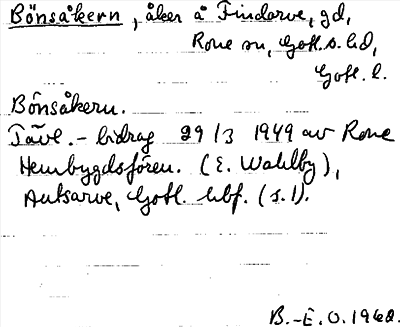 Bönsåkern, åker å Findarve, gd,
Rone sn, Gotl. s. hd,
Gotl. l.
Bönsåkern.
Tävl.-bidrag 29/3 1949 av Rone
Hembygdsfören. (E. Wahlby),
Autsarve, Gotl. hbf. (s. 1).
B.-E. O. 1962.